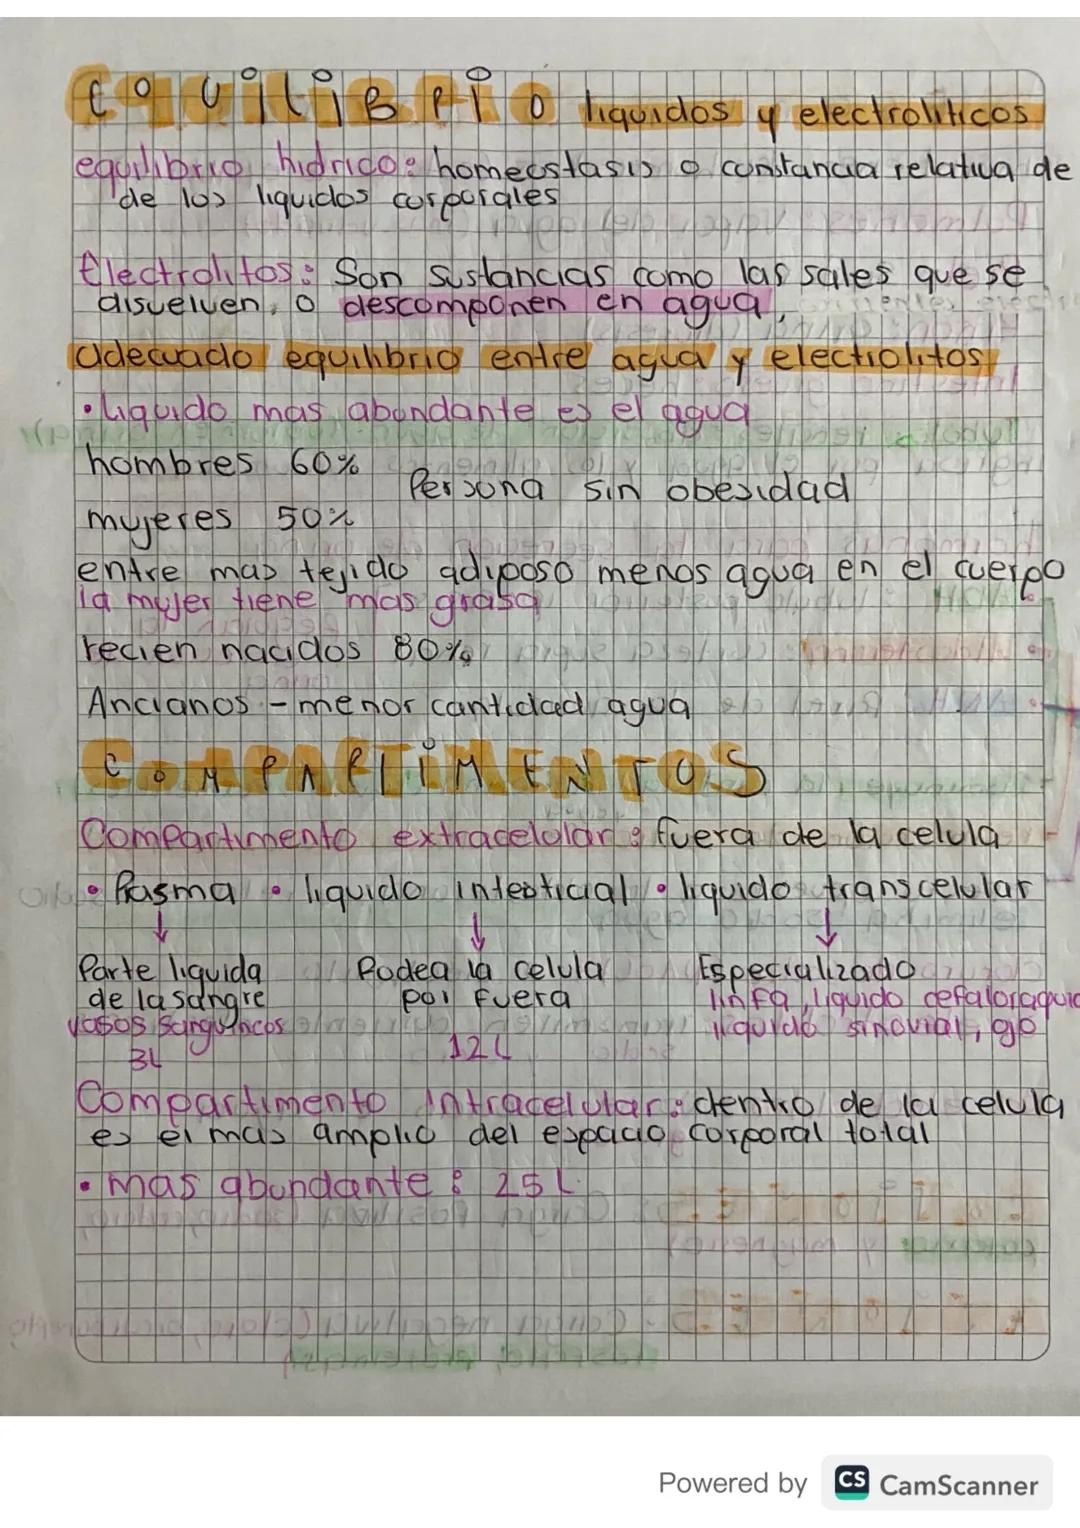 EqUiLiBRiO liquidos y electroliticos
equilibrio hidrico: homeostasis o constancia relativa de
de los liquidos corporales
Electrolitos: Son sustancias como las sales que se
disuelven, o descomponen en agua,
adecuado equilibrio entre agua y electrolitos
• liquido mas abundante es el agua
hombres 60%
Persona sin obesidad
mujeres 50%
entre mas tejido adiposo menos agua en el cuerpo
la mujer tiene mas grasa
recien nacidos 80%
Ancianos - menor cantidad agua
COMPARTIMENTOS
Compartimento extracelular: fuera de la celula
• Plasma • liquido intesticial • liquido transcelular
↓ ↓ ↓
Parte liquida Rodea la celula Especializado
de la sangre por fuera linfa, liquido cefaloraquid
vasos sanguineos 12L liquido sinovial, go
3L
Compartimento intracelular: dentro de la celula
es el mas amplio del espacio corporal total
• mas abundante: 25L
Powered by CS CamScanner